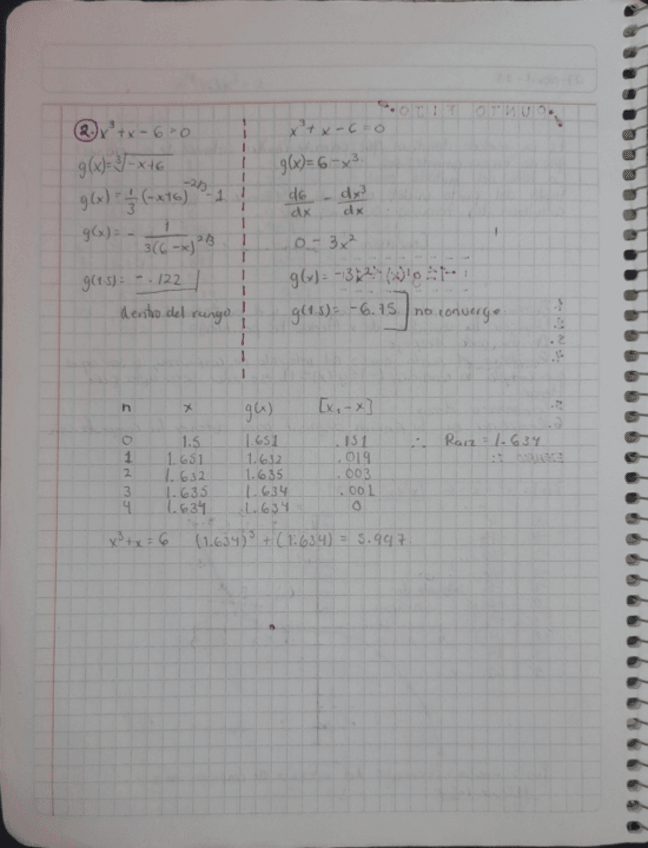 2. x³ + x - 6 = 0
g(x) = ∛-x+6
g(x) = 1/3 (-x+6)^-2/3 · -1
g(x) = - 1/3(6-x)^2/3
g(1.5) = -.122
dentro del rango
x³ + x - 6 = 0
g(x) = 6 - x³
d6/dx - dx³/dx
0 - 3x²
g(x) = -3x²
g(1.5) = -6.75 no converge
n x g(x) [x₁ - x]
0 1.5 1.651 .151 ∴ Raiz = 1.634
1 1.651 1.632 .019
2 1.632 1.635 .003
3 1.635 1.634 .001
4 1.634 1.634 0
x³+x = 6 (1.634)³ + (1.634) = 5.997